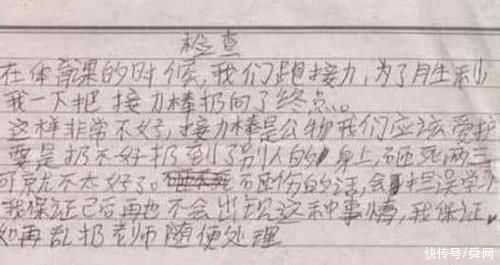 检查
在体育课的时候,我们跑接力,为了月生利
我一下把接力棒扔向了终点。
这样非常不好,接力棒是公物我们应该爱护
要是扔不好扔到了别人的身上,砸死两三
可就不太好了。砸伤的话,会耽误学
我保证已后再也不会出现这种事情,我保证
如再乱扔老师随便处理
快传号/舜网